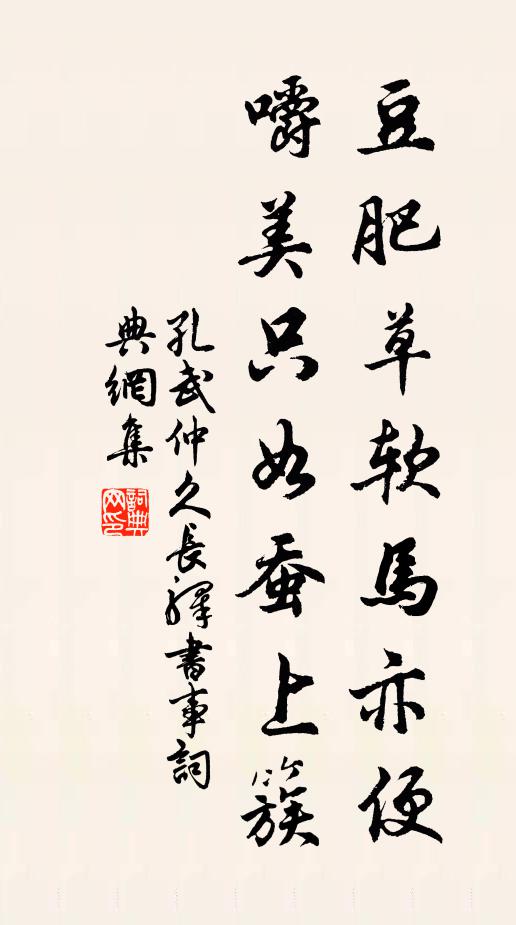 豆肥草软馬亦便
嚼美只如蚕上簇
孔武仲久長驛書事詞
典網集
詞典網印